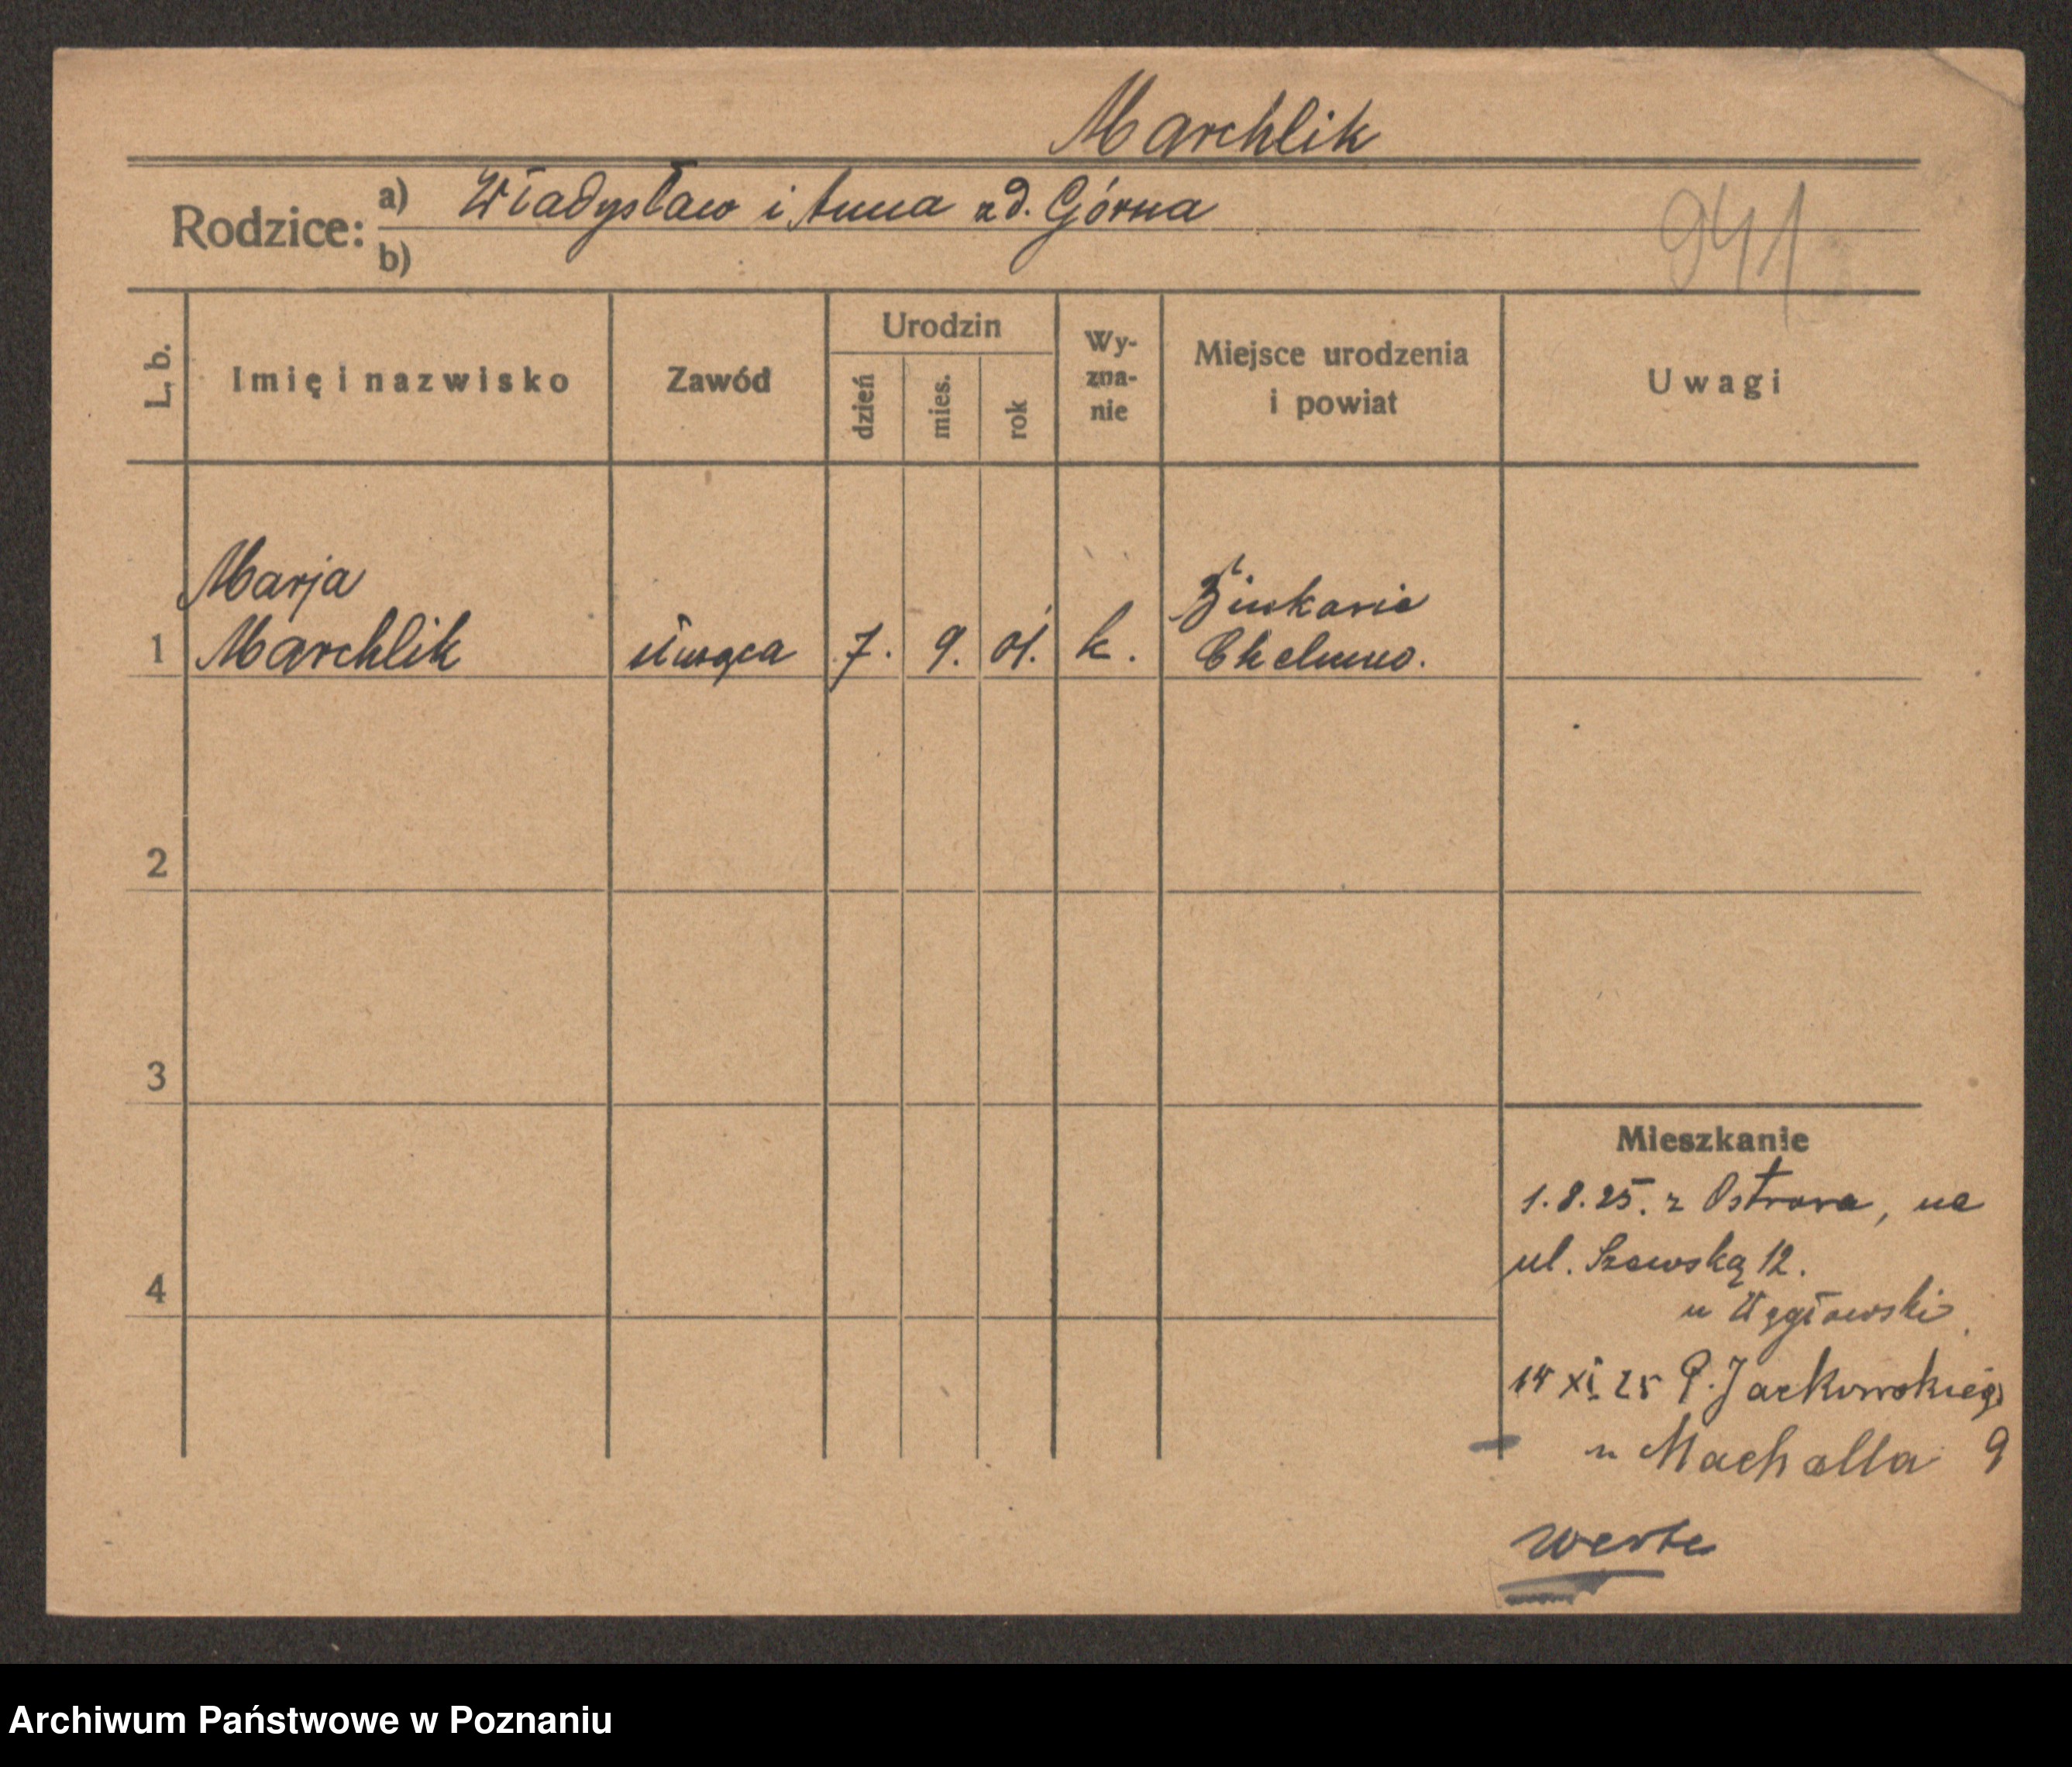 Marchlik
Rodzice: a) Władysław i Anna zd. Górna
b)
941
L. b.
Imię i nazwisko
Zawód
Urodzin
dzień
mies.
rok
Wy-
zna-
nie
Miejsce urodzenia
i powiat
Uwagi
Marja
1 Marchlik 7. 9. 01. k.
Chelmno.
2
3
4
Mieszkanie
1.8.25. z Ostrowa, na
ul. Szewską 12.
u Węgłowski
14 XI 25 P. Jackowskiego
u Machalla 9
werte
Archiwum Państwowe w Poznaniu